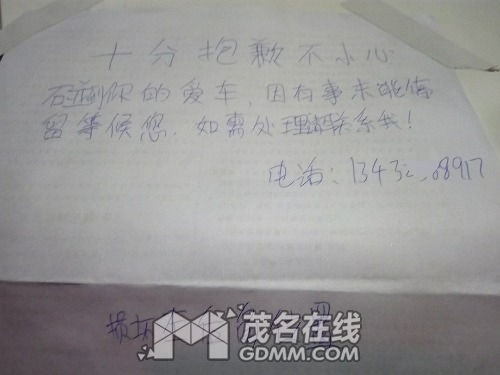 十分抱歉不小心
碰到你的爱车,因有事未能停
留等候您.如需处理请联系我!
电话:
损坏
茂名在线
GDMM.COM